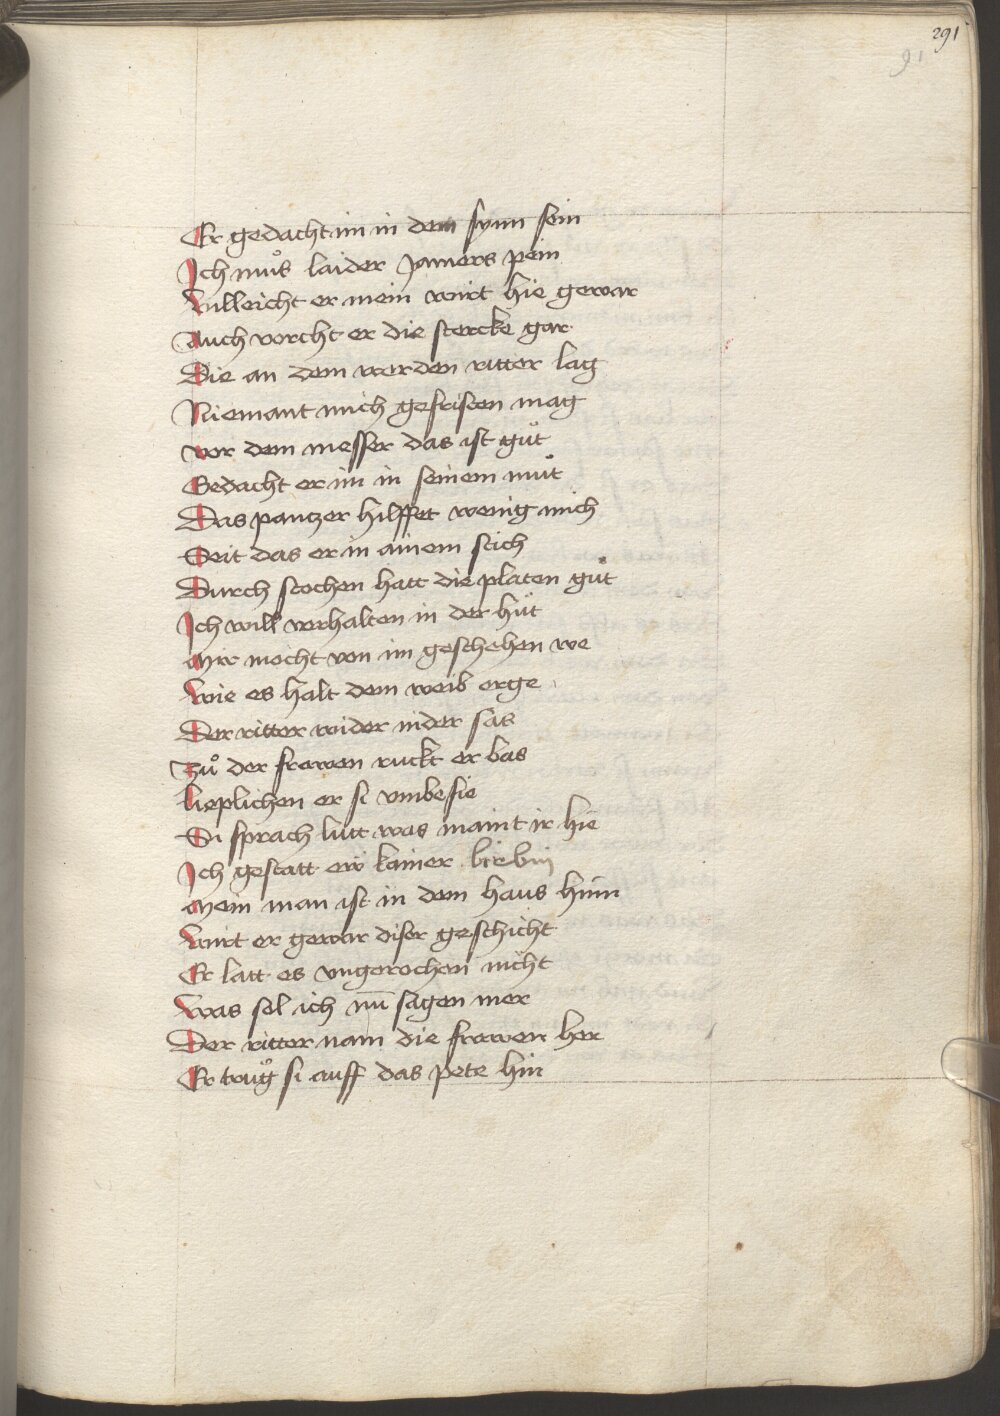 291
91
Er gedacht im in dem synn sein
Ich můs laider jamers pein
Villeicht er mein wirt hie gewar
Auch vorcht er die stercke gar
Die an dem werden ritter lag
Niemant mich gefristen mag
vor dem messer das ist gůt
Gedacht er im in seinem můt
Das pantzer hilffet wenig mich
Seit das er in ainem stich
Durch stochen hatt die platen gůt
Ich will verhalten in der hůt
Mir mocht von im geschehen we
Wie es halt dem weib erge
Der ritter wider nider sas
Zů der frawen ruckt er bas
lieplichen er si vmbefie
Si sprach lutt was maint ir hie
Ich gestatt ew kainer
Mein man ist in dem haus hinn
Wirt er gewar diser geschicht
Er latt es vngerochen nicht
Was sol ich nu̅ sagen mer
Der ritter nam die frawen her
Er trůg si auff das pete hin